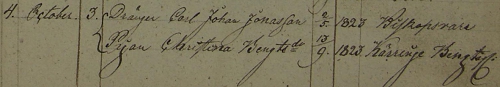 4. October. 3. Dränger Carl Johan Jonasson 2/5. 1823 Biskopsvara
Pigan Christina Bengtsdr 13/9. 1823. Kärringe Bengtsg.